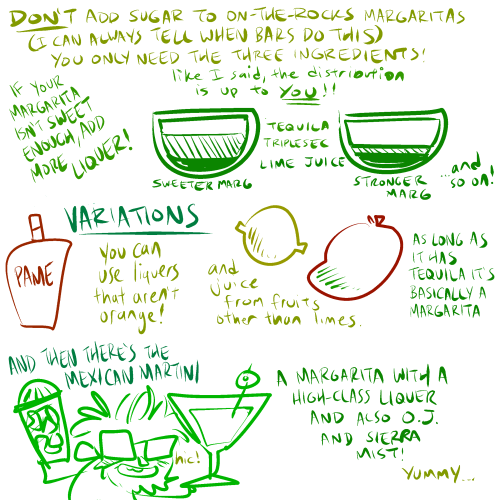 DON'T ADD SUGAR TO ON-THE-ROCKS MARGARITAS
(I CAN ALWAYS TELL WHEN BARS DO THIS)
YOU ONLY NEED THE THREE INGREDIENTS!
like I said, the distribution
is up to YOU!!
IF YOUR
MARGARITA
ISN'T SWEET
ENOUGH, ADD
MORE LIQUER!
TEQUILA
TRIPLESEC
LIME JUICE
SWEETER MARG
STRONGER
MARG
...and
so on!
VARIATIONS
PAME
you can
use liquers
that aren't
orange!
and
juice
from fruits
other than limes.
AS LONG AS
IT HAS
TEQUILA IT'S
BASICALLY A
MARGARITA
AND THEN THERE'S THE
MEXICAN MARTINI
hic!
A MARGARITA WITH A
HIGH-CLASS LIQUER
AND ALSO O.J.
AND SIERRA
MIST!
YUMMY...